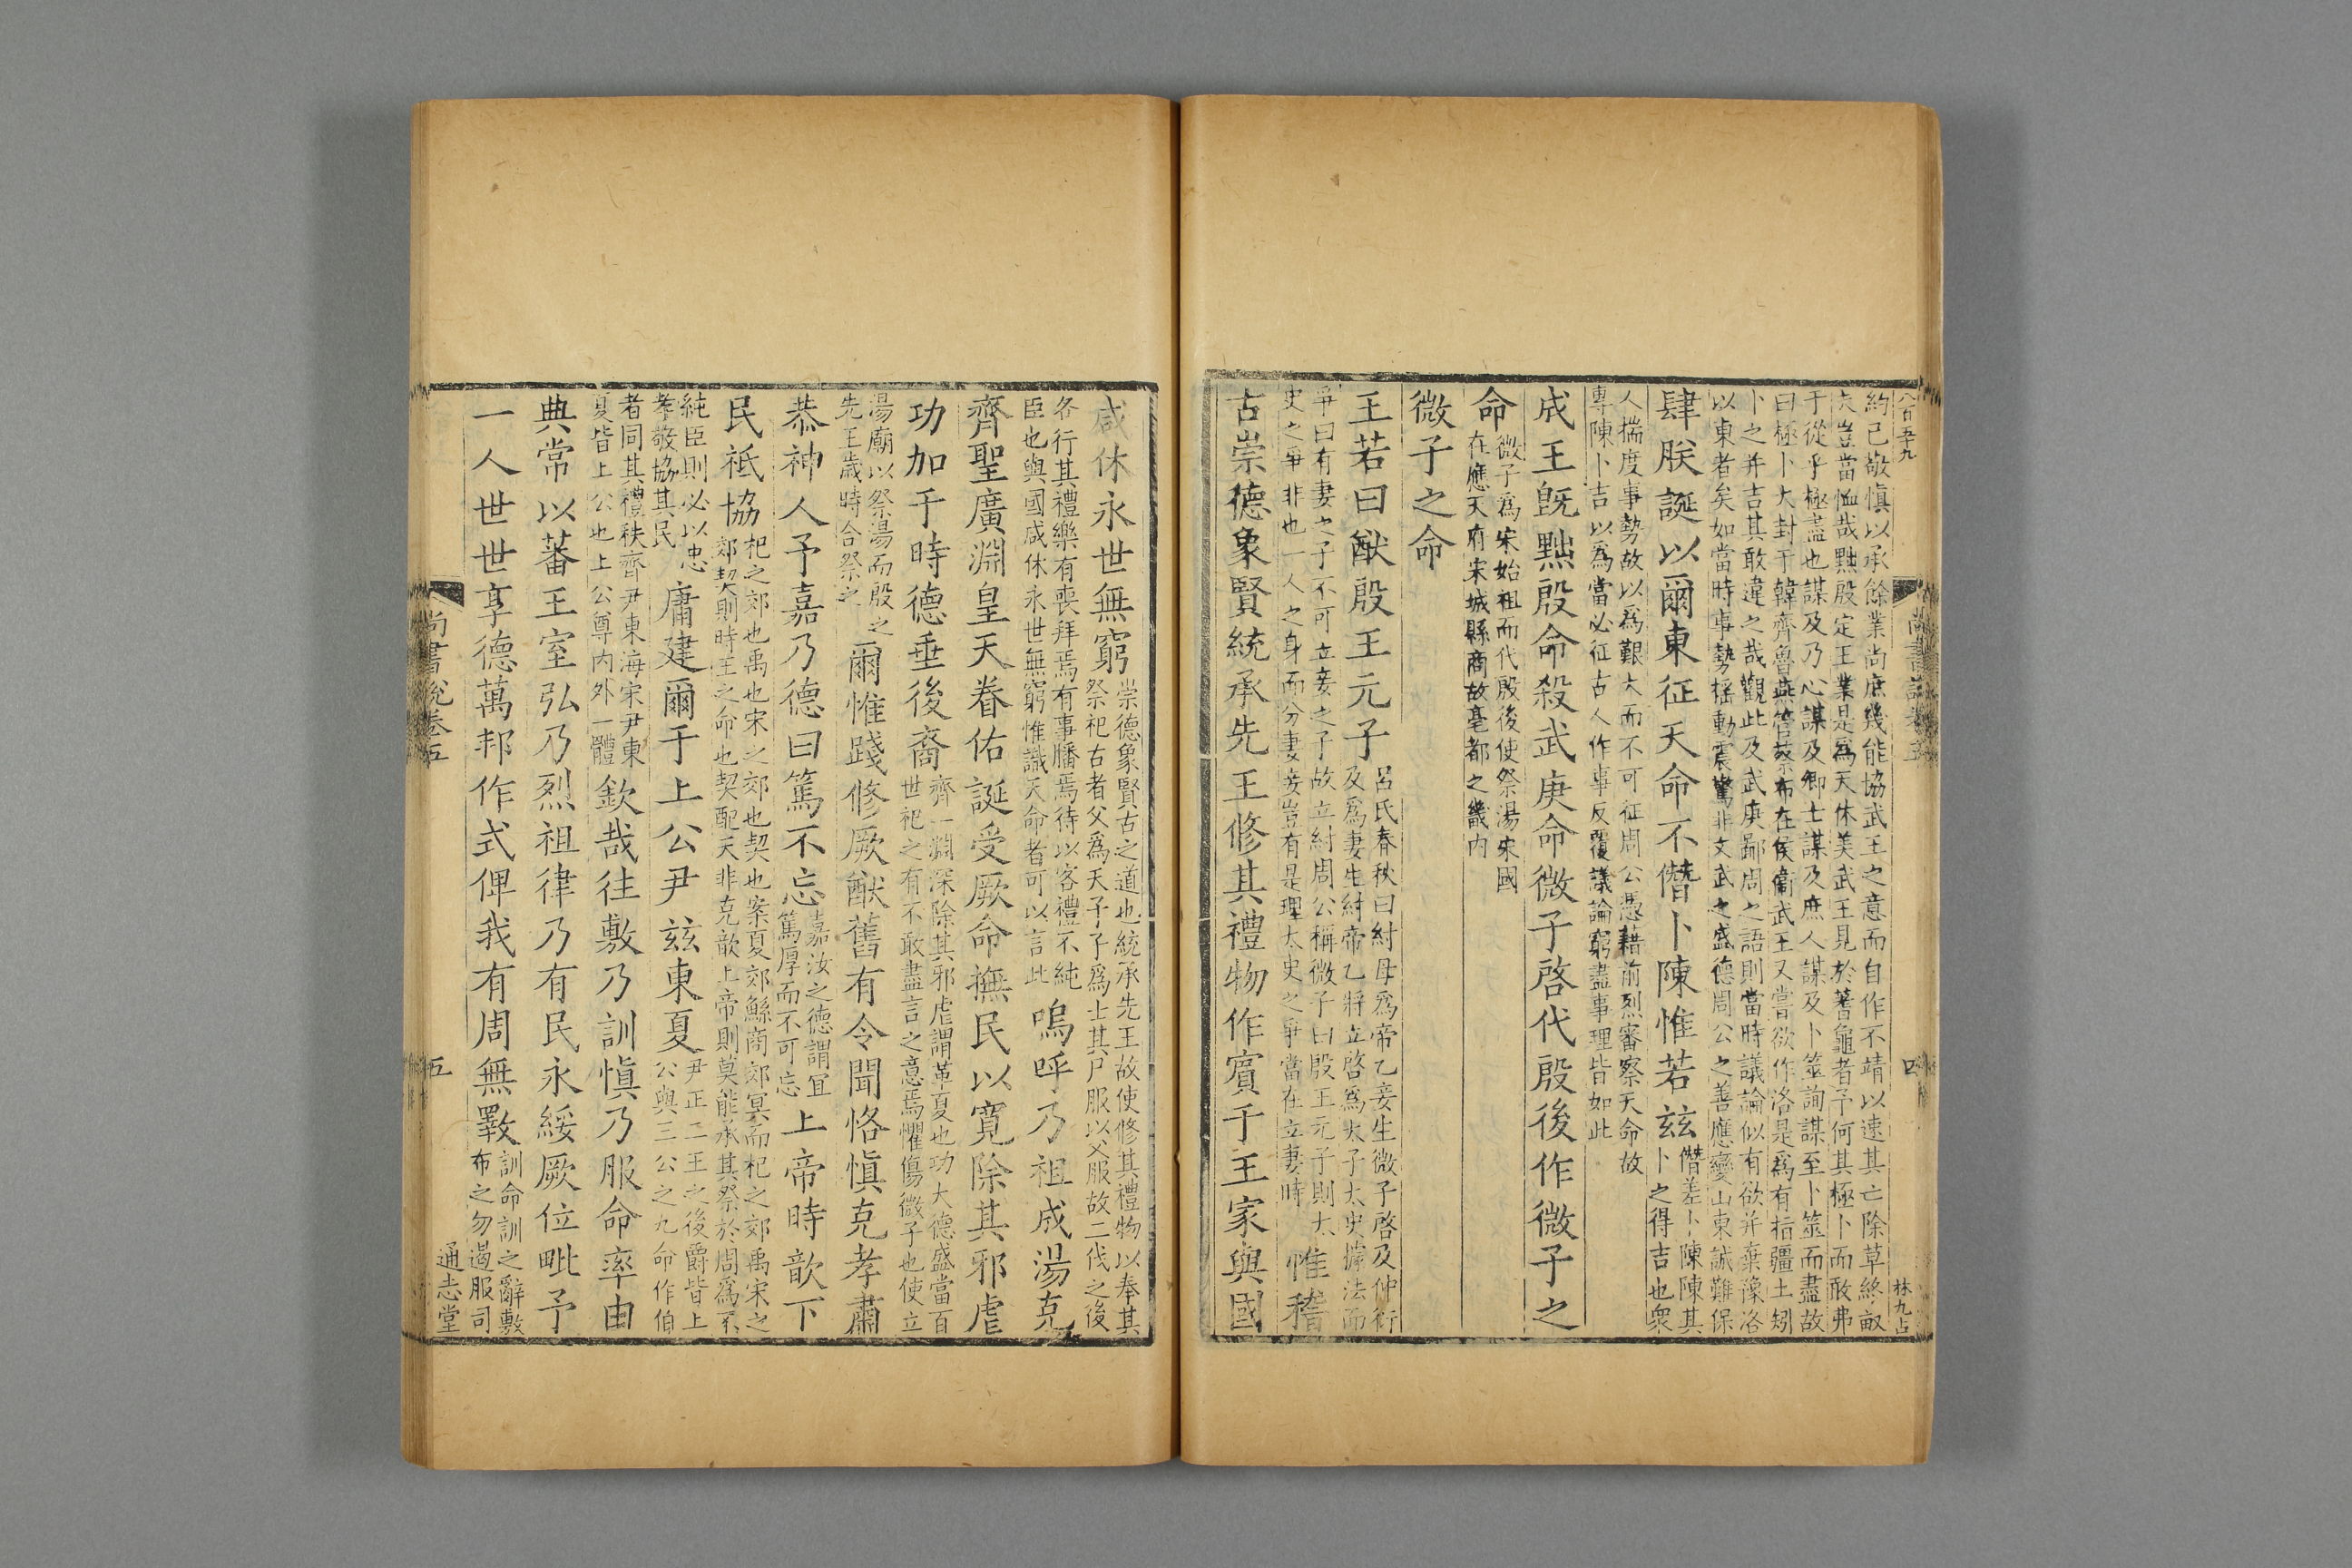 八百五十九
尚書說卷五
四
林九占
約己敬慎以承餘業尚庶幾能協武王之意而自作不靖以速其亡除草終畝
夫豈當恤哉黜殷定王業是爲天休美武王見於蓍龜者予何其極卜而敢弗
于從乎極盡也謀及乃心謀及卿士謀及庶人謀及卜筮詢謀至卜筮而盡故
曰極卜大封于韓齊魯燕管蔡布在侯衞武王又嘗欲作洛是爲有指疆土矧
卜之并吉其敢違之哉觀此及武庚鄙周之語則當時議論似有欲并棄豫洛
以東者矣如當時事勢搖動震驚非文武之盛德周公之善應變山東誠難保
肆朕誕以爾東征天命不僭卜陳惟若茲
僭差卜陳陳其
卜之得吉也衆
人揣度事勢故以爲艱大而不可征周公憑藉前烈審察天命故
專陳卜吉以爲當必征古人作事反覆議論窮盡事理皆如此
成王旣黜殷命殺武庚命微子啓代殷後作微子之
命
微子爲宋始祖而代殷後使祭湯宋國
在應天府宋城縣商故亳都之畿内
微子之命
王若曰猷殷王元子
呂氏春秋曰紂母爲帝乙妾生微子啓及仲衍
及爲妻生紂帝乙將立啓爲太子太史據法而
爭曰有妻之子不可立妾之子故立紂周公稱微子曰殷王元子則太
史之爭非也一人之身而分妻妾豈有是理太史之爭當在立妻時
惟稽
古崇德象賢統承先王修其禮物作賓于王家與國
咸休永世無窮
崇德象賢古之道也統承先王故使修其禮物以奉其
祭祀古者父爲天子子爲士其尸服以父服故二代之後
各行其禮樂有喪拜焉有事膰焉待以客禮不純
臣也與國咸休永世無窮惟識天命者可以言此
嗚呼乃祖成湯克
齊聖廣淵皇天眷佑誕受厥命撫民以寬除其邪虐
功加于時德垂後裔
齊一淵深除其邪虐謂革夏也功大德盛當百
世祀之有不敢盡言之意焉懼傷微子也使立
湯廟以祭湯而殷之
先王歲時合祭之
爾惟踐修厥猷舊有令聞恪慎克孝肅
恭神人予嘉乃德曰篤不忘
嘉汝之德謂宜
篤厚而不可忘
上帝時歆下
民祗協
杞之郊也禹也宋之郊也契也案夏郊鯀商郊冥而杞之郊禹宋之
郊契則時王之命也契配天非克歆上帝則莫能承其祭於周爲不
純臣則必以忠
孝敬協其民
庸建爾于上公尹茲東夏
尹正二王之後爵皆上
公與三公之九命作伯
者同其禮秩齊尹東海宋尹東
夏皆上公也上公尊内外一體
欽哉往敷乃訓慎乃服命率由
典常以蕃王室弘乃烈祖律乃有民永綏厥位毗予
一人世世享德萬邦作式俾我有周無斁
訓命訓之辭敷
布之勿遏服司
尚書說卷五
五
通志堂